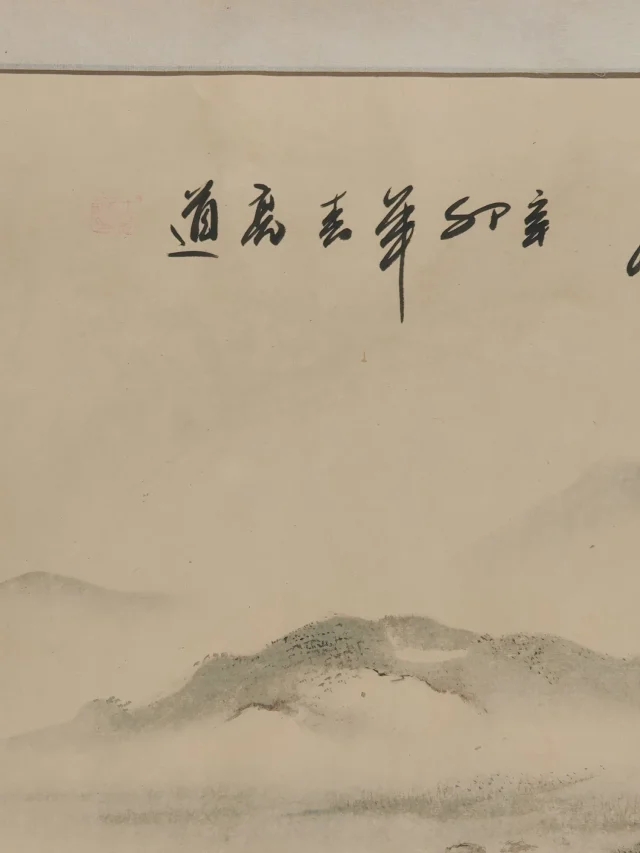 辛卯年春高道